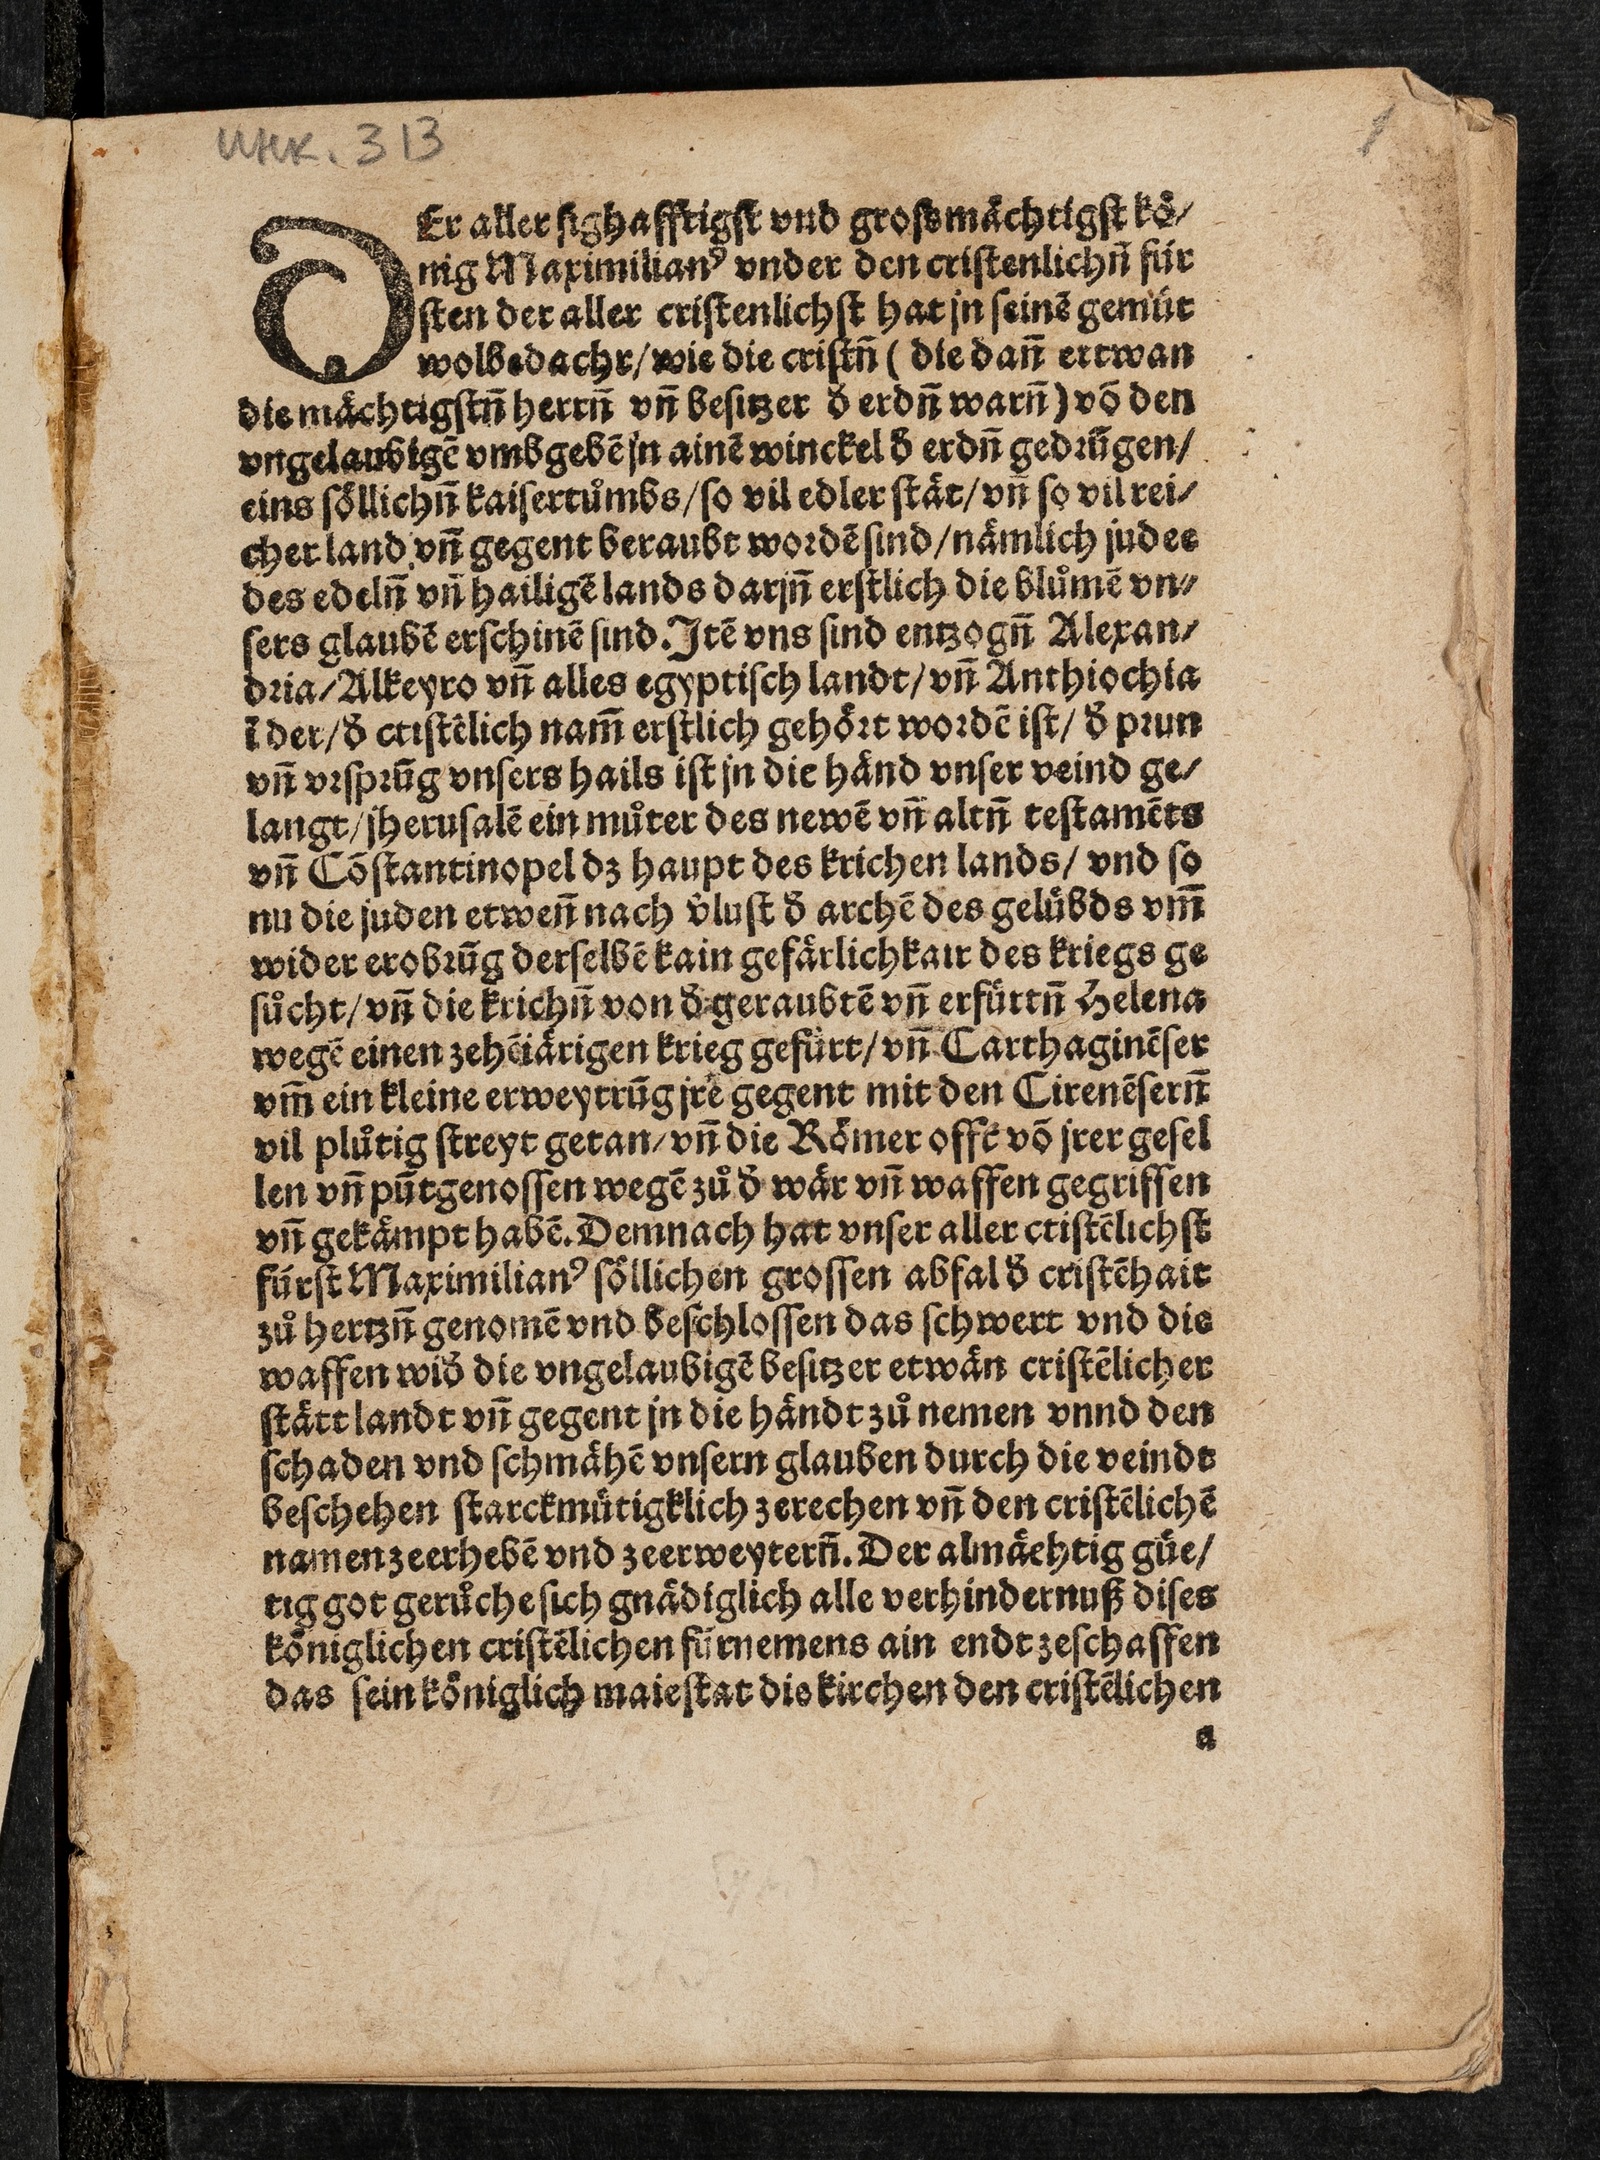 инк. 313
1
DEr aller sighafftigst vnd grossmåchtigst kö/
nig Maximilianꝰ vnder den cristenlichn̄ für
sten der aller cristenlichst hat jn seinē gemüt
wolbedacht/wie die cristn̄ ( die dan̄ ettwan
die måchtigstn̄ herrn̄ vn̄ besitzer đ erdn̄ warn̄) vō den
vngelaubigē vmbgebē jn ainē winckel đ erdn̄ gedrūgen/
eins söllichn̄ kaisertůmbs/so vil edler ståt/vn̄ so vil rei/
cher land vn̄ gegent beraubt wordē sind/nämlich judee
des edeln̄ vn̄ hailigē lands darjn̄ erstlich die blůmē vn/
sers glaubē erschinē sind. Itē vns sind entzogn̄ Alexan/
dria/Alkeyro vn̄ alles egyptisch landt/vn̄ Anthiochia
ī der/đ cristēlich nam̄ erstlich gehört wordē ist/ đ prun
vn̄ vrsprūg vnsers hails ist jn die händ vnser veind ge/
langt/jherusalē ein můter des newē vn̄ altn̄ testamēts
vn̄ Cōstantinopel dz haupt des krichen lands/ vnd so
nu die juden etwen̄ nach v̄lust đ archē des gelübds vm̄
wider erobrūg derselbē kain gefärlichkait des kriegs ge
sůcht/vn̄ die krichn̄ von đ geraubtē vn̄ erfürtn̄ Helena
wegē einen zehēiärigen krieg gefürt/vn̄ Carthaginēser
vm̄ ein kleine erweytrūg jrē gegent mit den Cirenēsern̄
vil plůtig streyt getan/vn̄ die Römer offt vō jrer gesel
len vn̄ pūtgenossen wegē zů đ wär vn̄ waffen gegriffen
vn̄ gekämpt habē. Demnach hat vnser aller cristēlichst
fürst Maximilianꝰ söllichen grossen abfal đ cristēhait
zů hertzn̄ genomē vnd beschlossen das schwert vnd die
waffen wiđ die vngelaubigē besitzer etwän cristēlicher
stätt landt vn̄ gegent jn die händt zů nemen vnnd den
schaden vnd schmähē vnsern glauben durch die veindt
beschehen starckmütigklich zerechen vn̄ den cristēlichē
namen zeerhebē vnd zeerweytern̄. Der almächtig güe/
tig got gerůche sich gnädiglich alle verhindernuß dises
königlichen cristēlichen fürnemens ain endt zeschaffen
das sein königlich maiestat die kirchen den cristēlichen
a